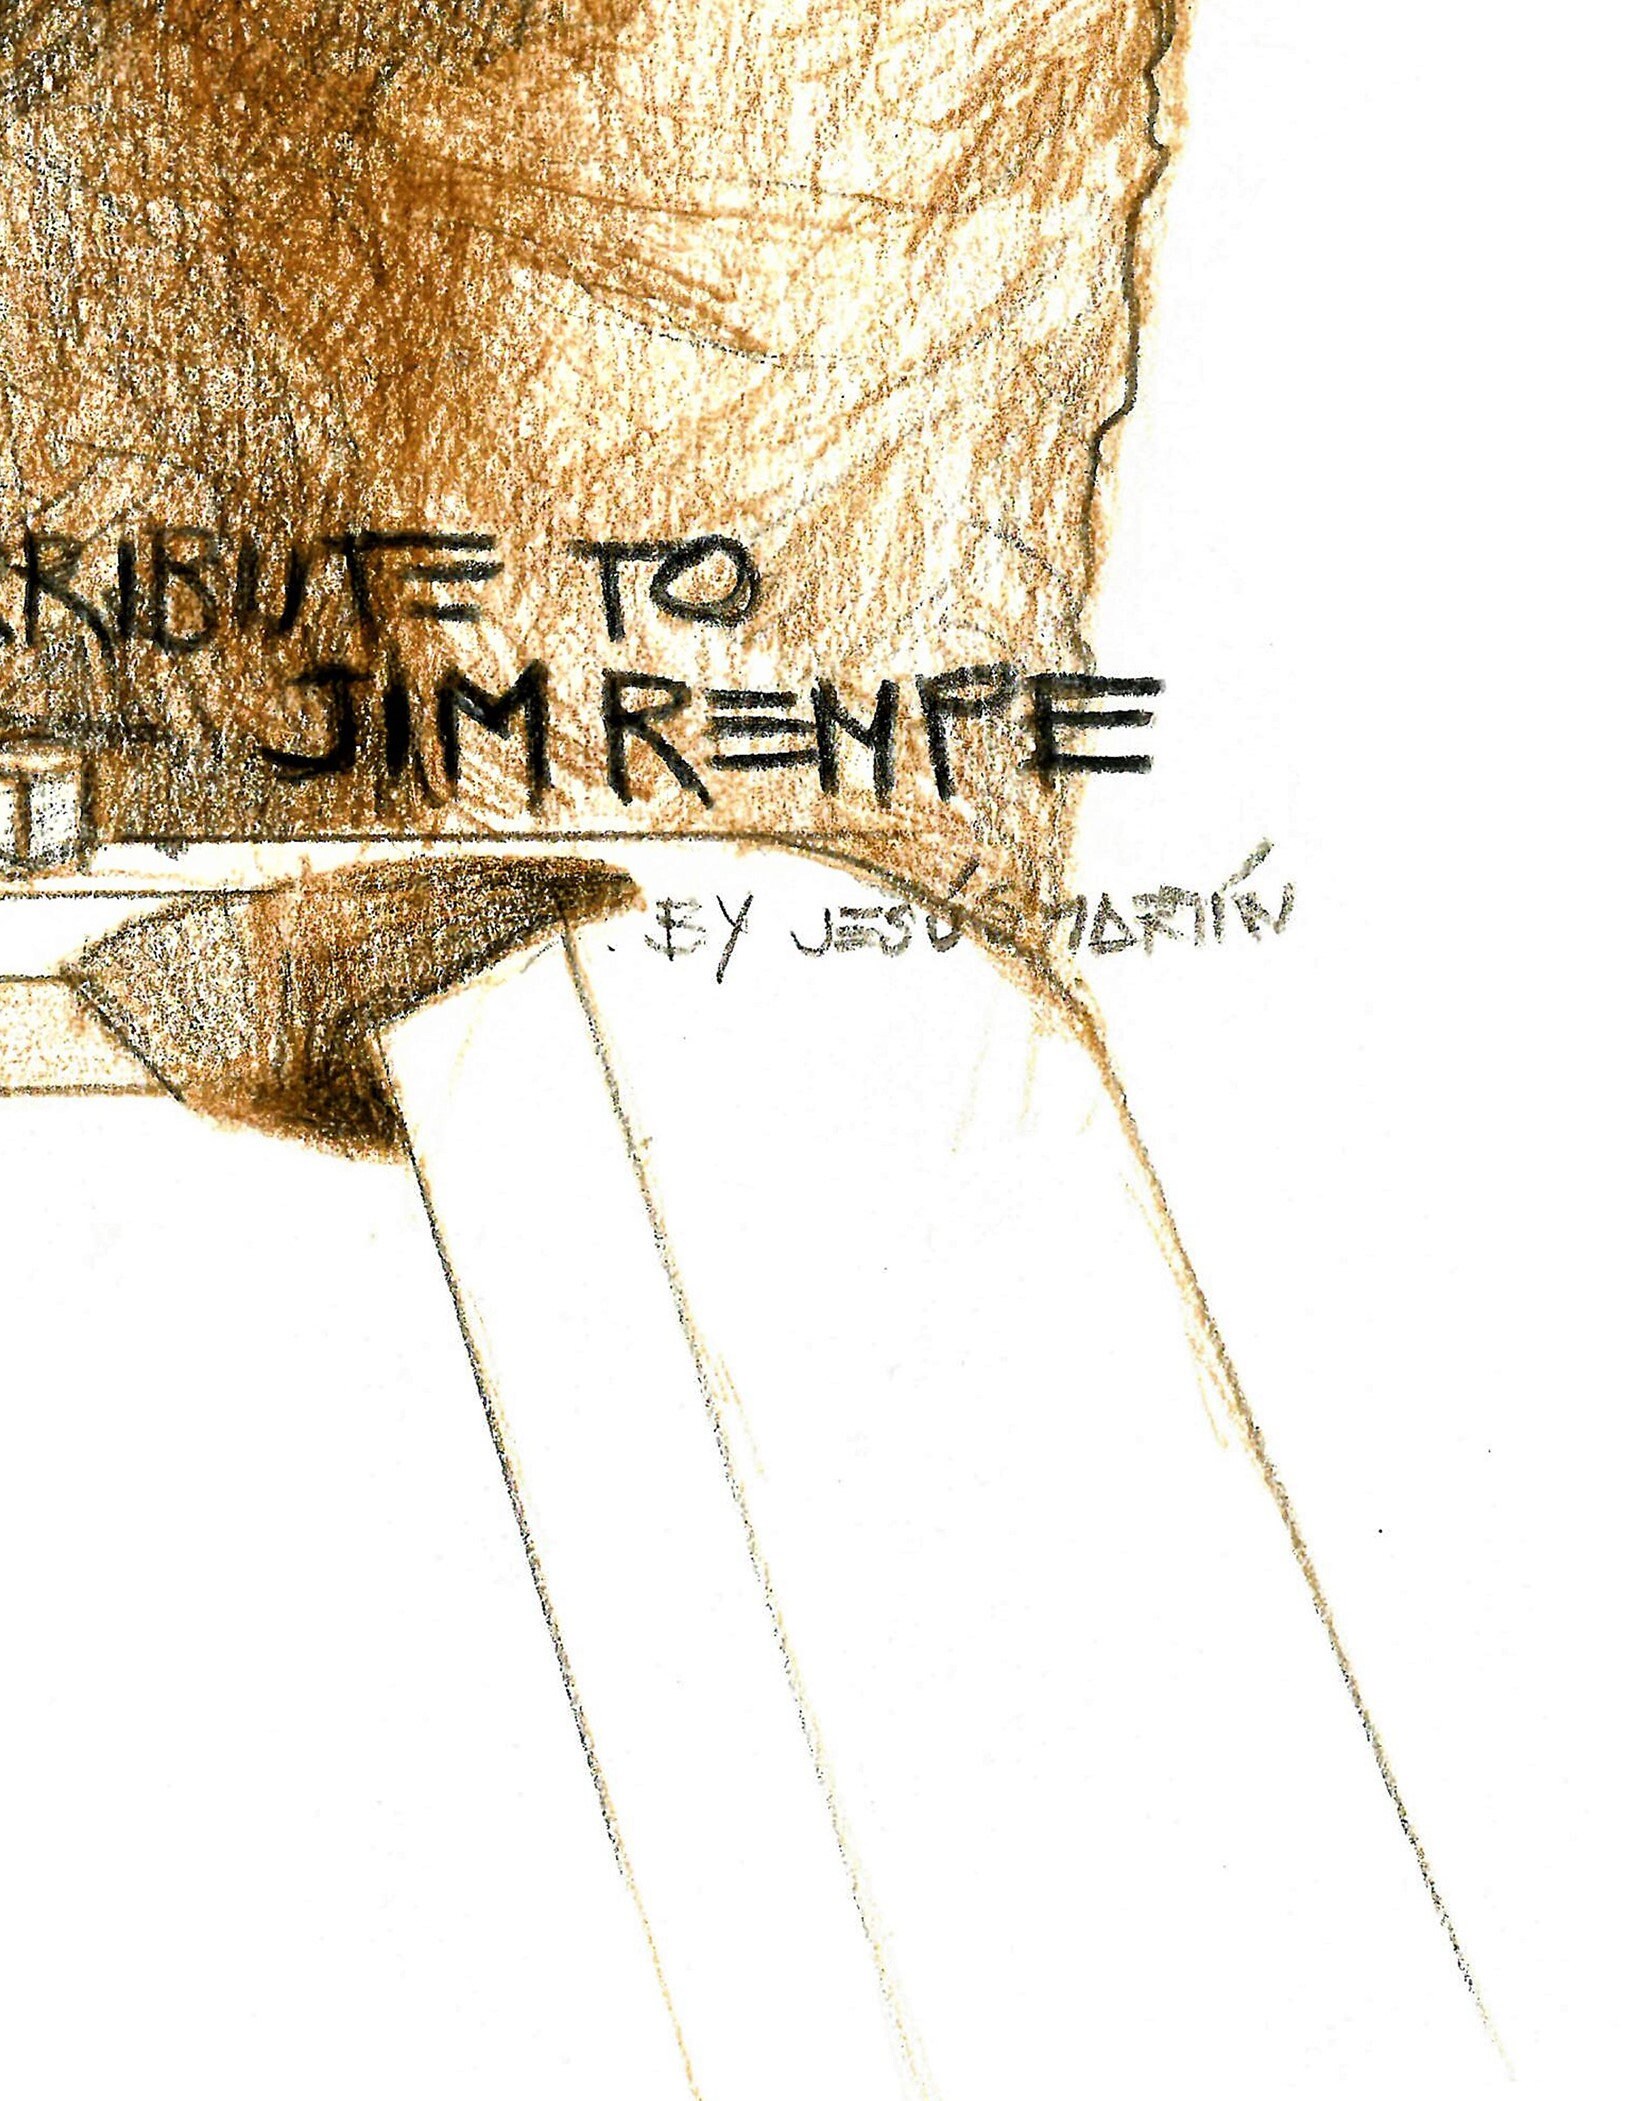 TRIBUTE TO
JIM REMPE
. BY JESÚS MARTÍN